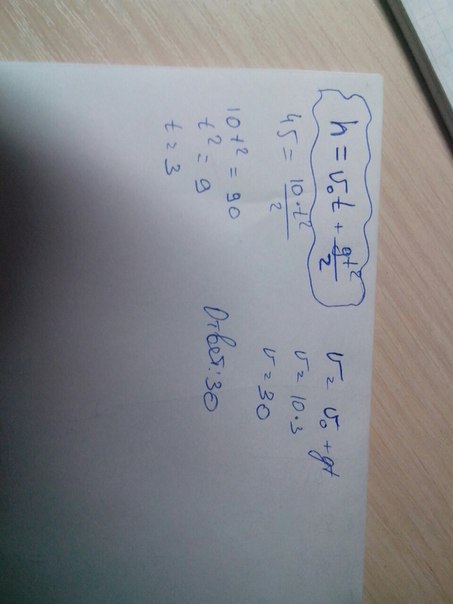 h = v₀t + gt²/2
45 = 10·t²/2
10t² = 90
t² = 9
t = 3
v = v₀ + gt
v = 10·3
v = 30
Ответ: 30